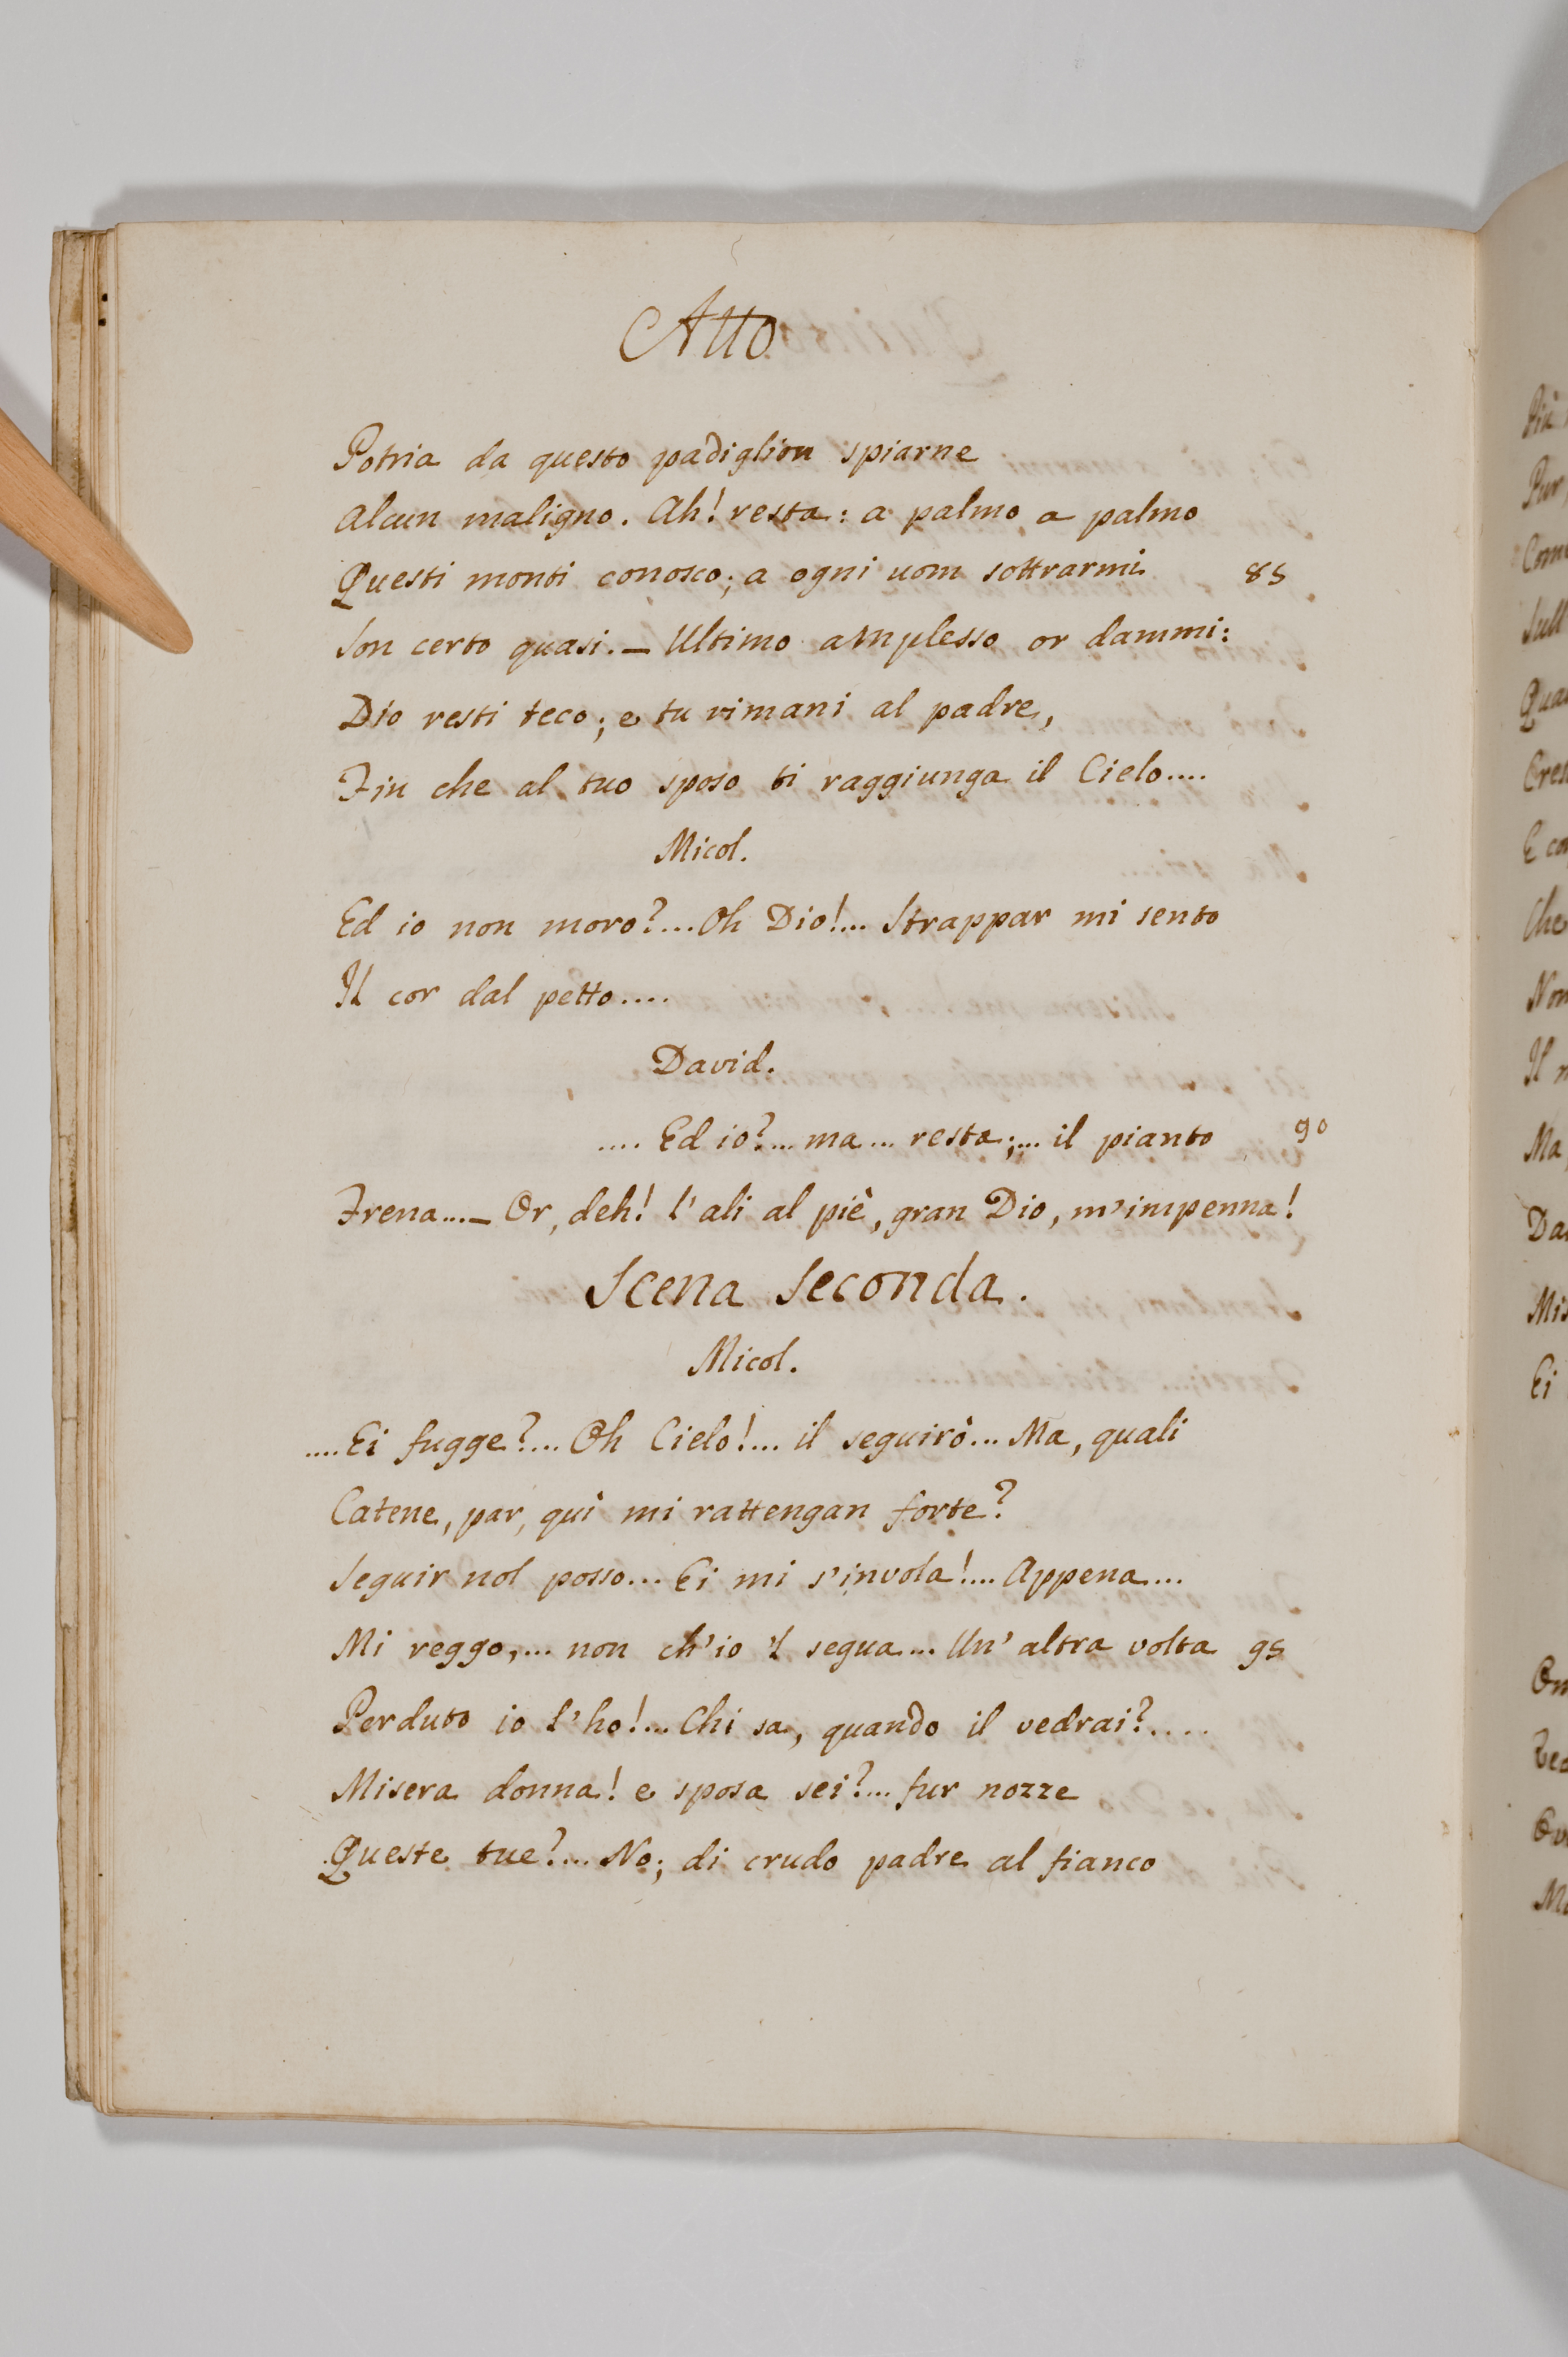 Atto
Potria da questo padiglion spiarne
Alcun maligno. Ah! resta: a palmo a palmo
Questi monti conosco; a ogni uom sottrarmi 85
Son certo quasi. — Ultimo amplesso or dammi:
Dio resti teco; e tu rimani al padre,
Fin che al tuo sposo ti raggiunga il Cielo....
Micol.
Ed io non moro?... Oh Dio!... Strappar mi sento
Il cor dal petto....
David.
.... Ed io?... ma... resta;... il pianto 90
Frena...— Or, deh! l'ali al piè, gran Dio, m'impenna!
Scena Seconda.
Micol.
....Ei fugge?... Oh Cielo!... il seguirò... Ma, quali
Catene, par, quì mi rattengan forte?
Seguir nol posso... Ei mi s'invola!... Appena...
Mi reggo,... non ch'io 'l segua... Un' altra volta 95
Perduto io l'ho!... Chi sa, quando il vedrai?....
Misera donna! e sposa sei?... fur nozze
Queste tue?... No; di crudo padre al fianco
Più
Pur
Sull
Che
Non
Ma
Ei